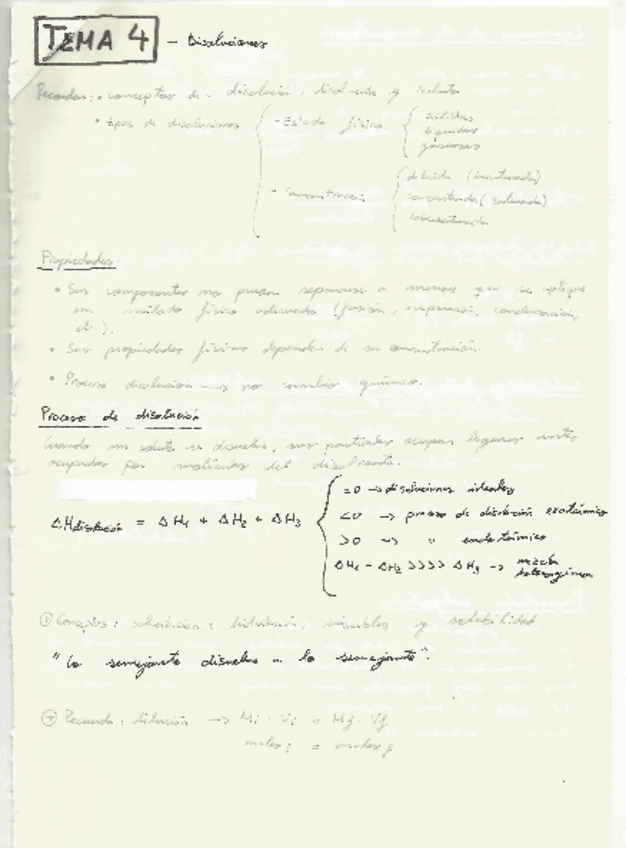 TEMA 4 - Disoluciones
Recordar: • conceptos de: disolución, disolvente y soluto
• tipos de disoluciones - Estado físico sólidas
líquidas
gaseosas
- Concentración diluida (insaturada)
concentrada (saturada)
sobresaturada
Propiedades:
• Sus componentes no pueden separarse a menos que se aplique
un método físico adecuado (fusión, evaporación, condensación,
etc.).
• Sus propiedades físicas dependen de su concentración.
• Proceso disolución → no cambio químico.
Proceso de disolución
Cuando un soluto se disuelve, sus partículas ocupan lugares antes
ocupados por moléculas del disolvente.
ΔHdisolución = ΔH1 + ΔH2 + ΔH3
=0 → disoluciones ideales
<0 → proceso de disolución exotérmico
>0 → " endotérmico
ΔH1 - ΔH2 >>>> ΔH3 → mezcla
heterogénea
Conceptos: solvatación e hidratación, miscibles y solubilidad
"Lo semejante disuelve a lo semejante".
Recuerda: dilución → Mi · Vi = Mf · Vf
moles i = moles f